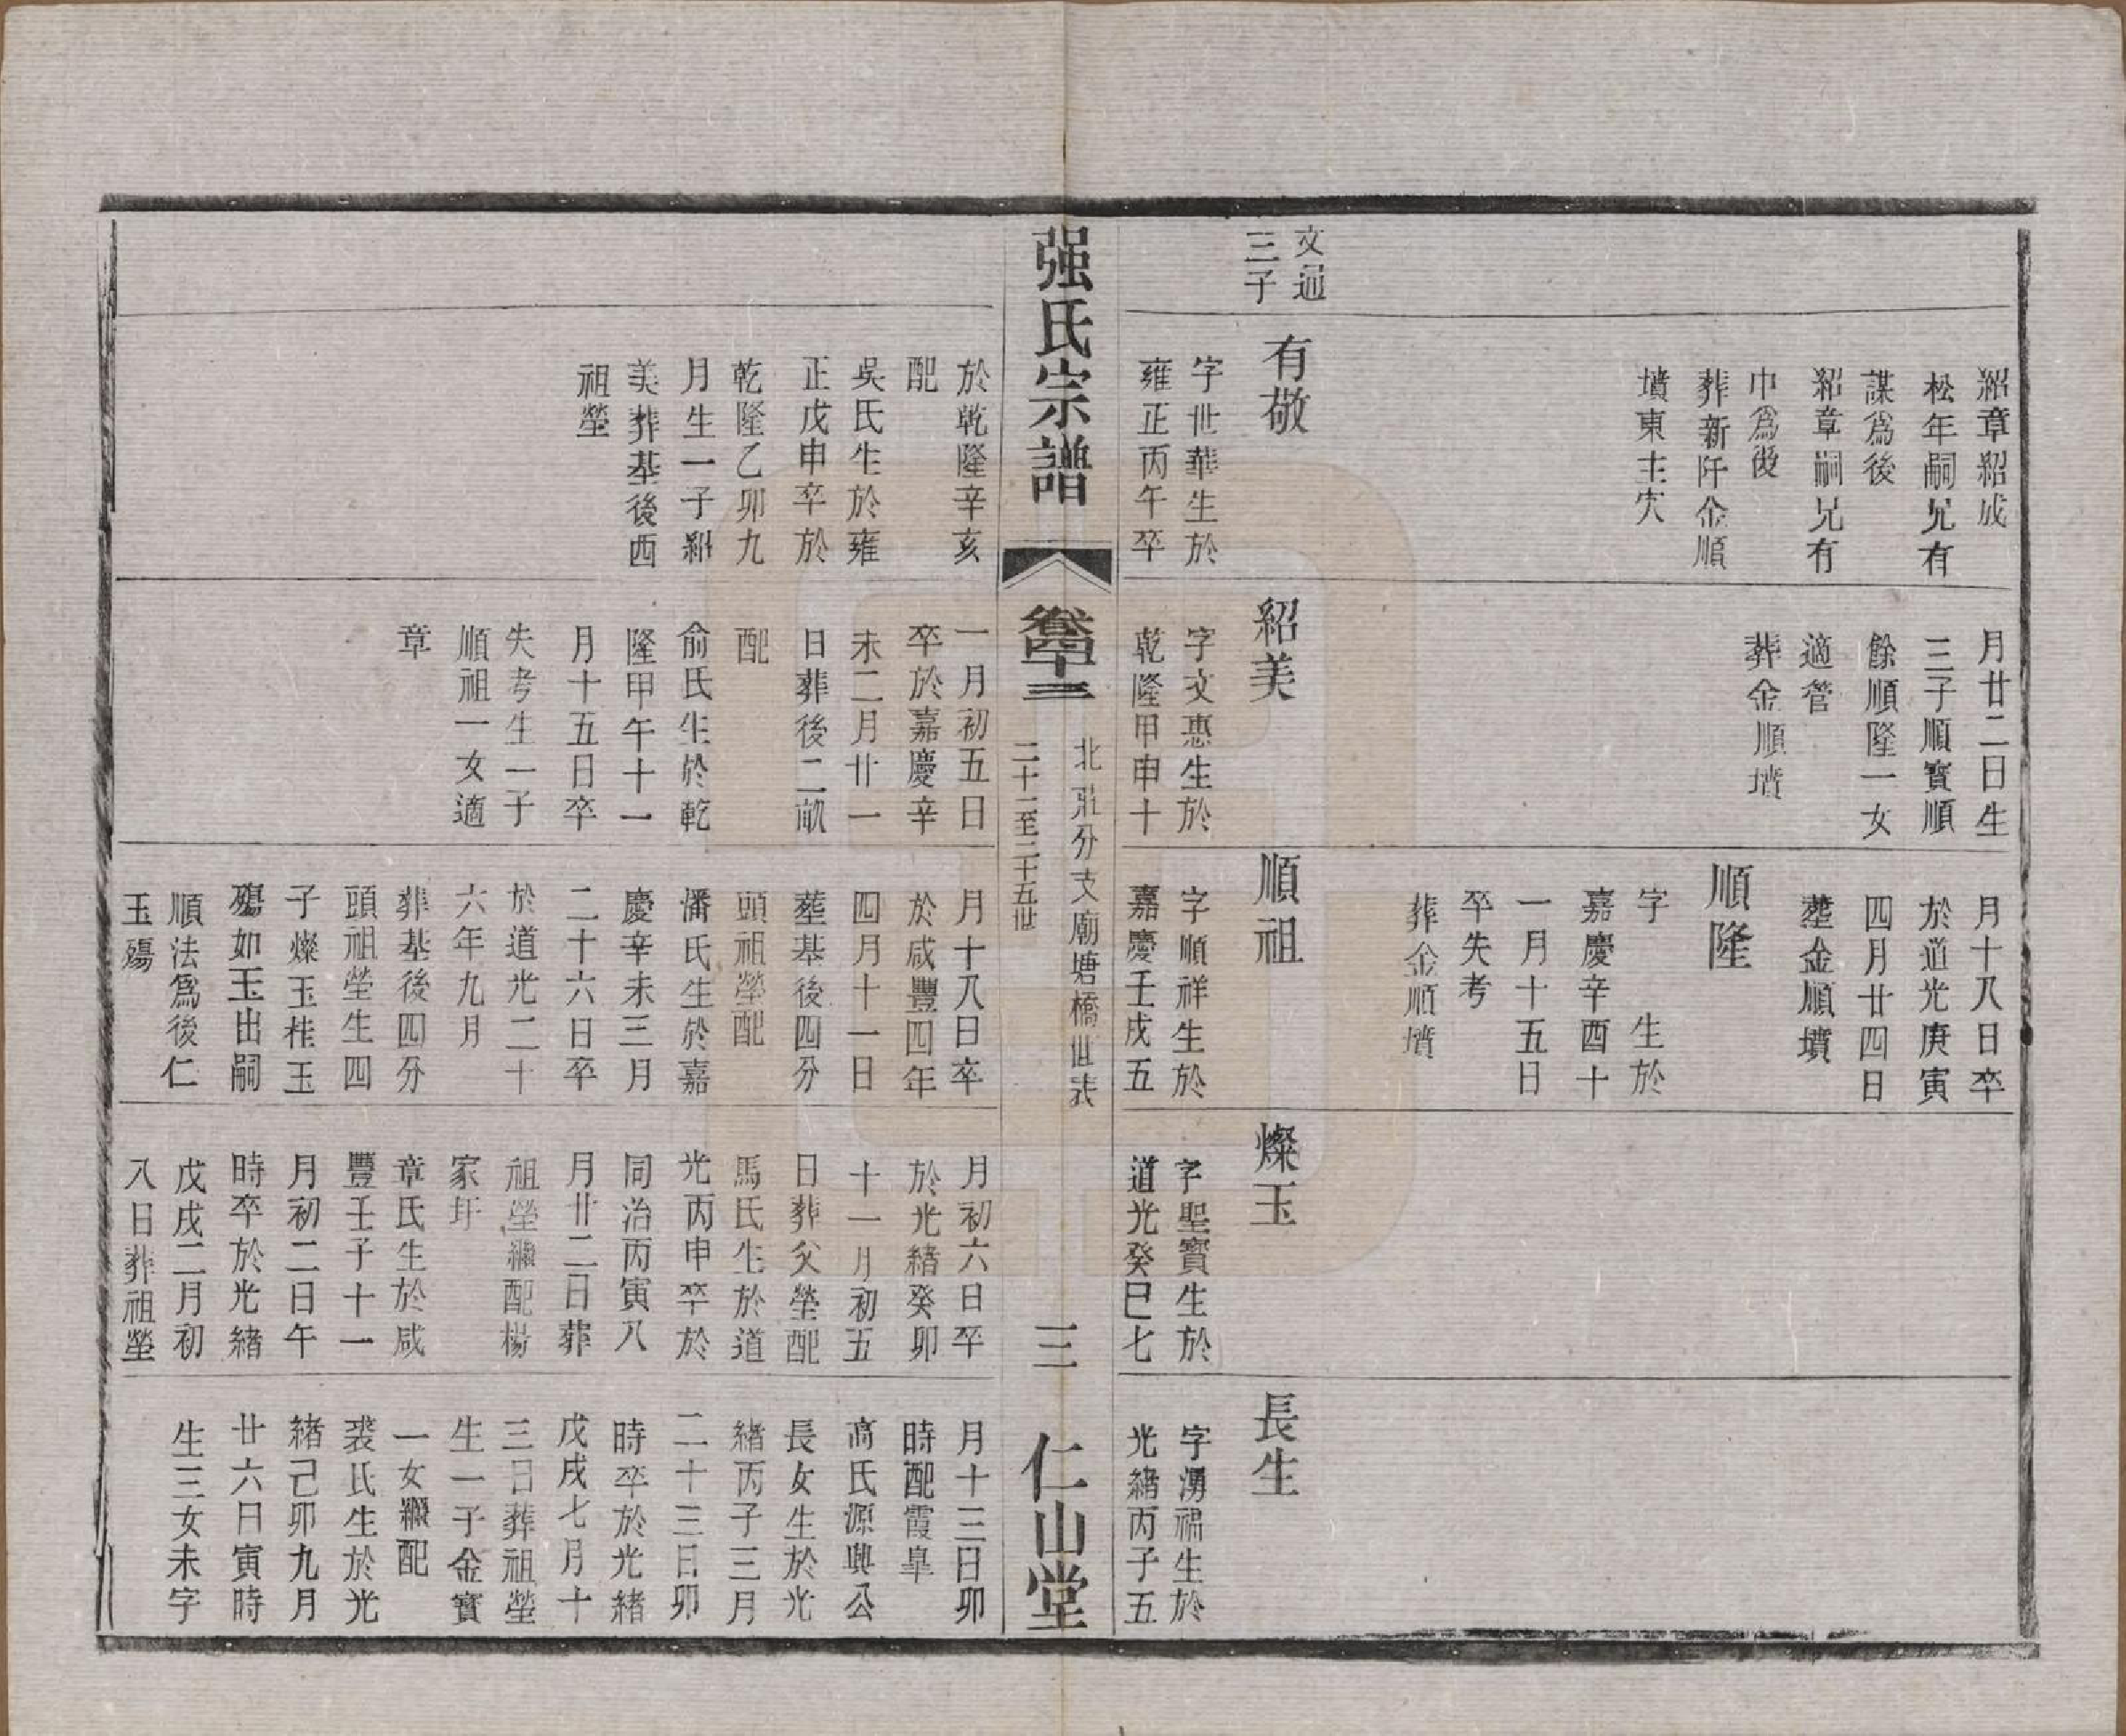 紹章紹成
松年嗣兄有
謀爲後
紹章嗣兄有
巾爲後
葬新阡金順
墳東主穴
月廿二日生
三子順寶順
餘順隆一女
適管
葬金順墳
月十八日卒
於道光庚寅
四月廿四日
葬金順墳
順隆
字　　生於
嘉慶辛酉十
一月十五日
卒失考
葬金順墳
文通
三子
有敬
字世華生於
雍正丙午卒
紹美
字文惠生於
乾隆甲申十
順祖
字順祥生於
嘉慶壬戌五
燦玉
字聖寶生於
道光癸巳七
長生
字湧福生於
光緒丙子五
强氏宗譜
卷十二
北莊分支廟塘橋世表
二十一至二十五世
三
仁山堂
於乾隆辛亥
配
吳氏生於雍
正戊申卒於
乾隆乙卯九
月生一子紹
美葬基後西
祖塋
一月初五日
卒於嘉慶辛
未二月廿一
日葬後二畝
配
俞氏生於乾
隆甲午十一
月十五日卒
失考生一子
順祖一女適
章
月十八日卒
於咸豐四年
四月十一日
葬基後四分
頭祖塋配
潘氏生於嘉
慶辛未三月
二十六日卒
於道光二十
六年九月
葬基後四分
頭祖塋生四
子燦玉桂玉
殤如玉出嗣
順法爲後仁
玉殤
月初六日卒
於光緒癸卯
十一月初五
日葬父塋配
馬氏生於道
光丙申卒於
同治丙寅八
月廿二日葬
祖塋繼配楊
家圩
章氏生於咸
豐壬子十一
月初二日午
時卒於光緒
戊戌二月初
八日葬祖塋
月十三日卯
時配霞阜
高氏源興公
長女生於光
緒丙子三月
二十三日卯
時卒於光緒
戊戌七月十
三日葬祖塋
生一子金寶
一女繼配
裘氏生於光
緒己卯九月
廿六日寅時
生三女未字